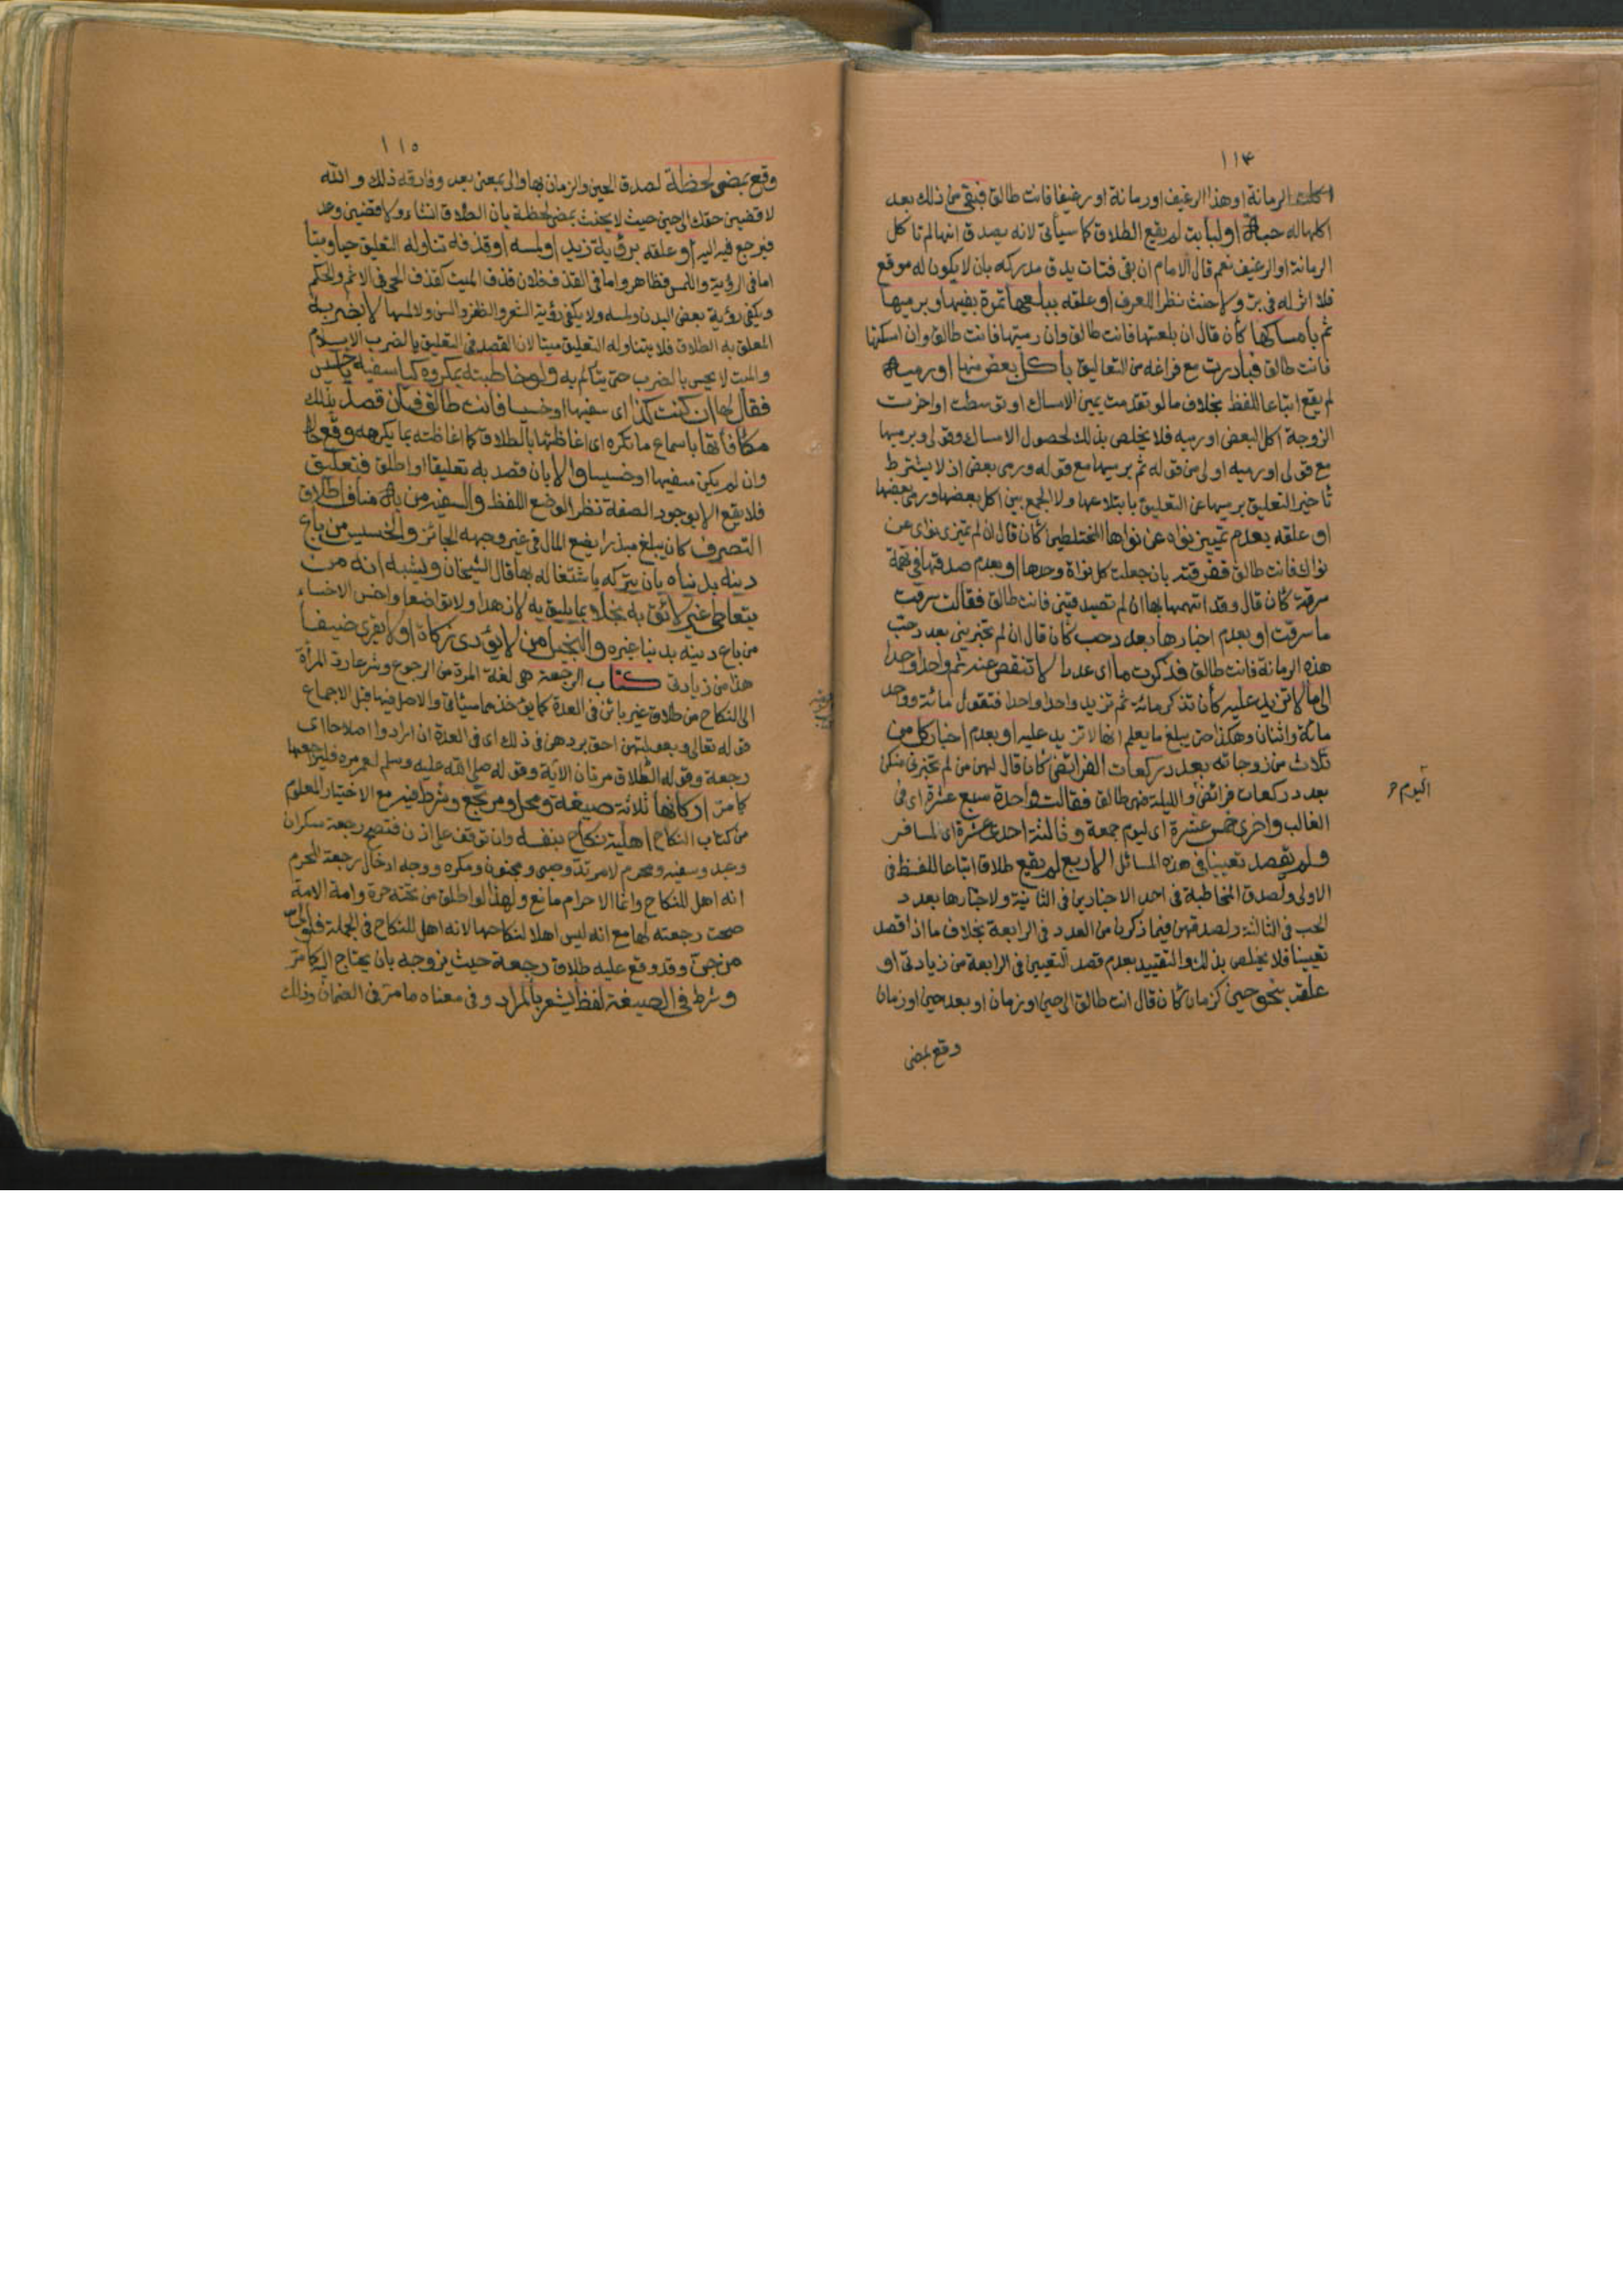 ١١٤
اكلت الرمانة او هذا الرغيف او رمانة او رغيفا فانت طالق فبقي من ذلك بعد
اكلها له حبة او لبابة لم يقع الطلاق كما سيأتي لانه يصدق انها لم تأكل
الرمانة او الرغيف نعم قال الامام ان بقي فتات يدق مدركه بان لا يكون له موقع
فلا اثر له في بر ولا حنث نظرا للعرف او علقه ببلعها تمرة بفيها وبرميها
ثم بامساكها كأن قال ان بلعتها فانت طالق وان رميتها فانت طالق وان امسكتها
فانت طالق فبادرت مع فراغه من التعاليق باكل بعض منها او رميه
لم يقع اتباعا للفظ بخلاف ما لو تقدمت يمين الامساك او توسطت او اخرت
الزوجة اكل البعض او رميه فلا يخلص بذلك لحصول الامساك وقولي وبرميها
مع قولي او رميه اولى من قوله ثم برميها مع قوله ورمي بعض اذ لا يشترط
تأخير التعليق برميها عن التعليق بابتلاعها ولا الجمع بين اكل بعضها ورمي بعضها
او علقه بعدم تمييز نواه عن نواها المختلطين كأن قال ان لم تميزي نواي عن
نواك فانت طالق ففرقته بان جعلت كل نواة وحدها او بعدم صدقها في تهمة
سرقة كأن قال وقد اتهمها بها ان لم تصدقيني فانت طالق فقالت سرقت
ما سرقت او بعدم اخبارها بعدد حب كأن قال ان لم تخبريني بعدد حب
هذه الرمانة فانت طالق فذكرت ما اي عددا لا تنقص عنه ثم واحدا واحدا
الى ما لا تزيد عليه كأن تذكر مائة ثم تزيد واحدا واحدا فتقول مائة وواحد
مائة واثنان وهكذا حتى يبلغ ما يعلم انها لا تزيد عليه او بعدم اخبار كل من
ثلاث من زوجاته بعدد ركعات الفرائض كأن قال لهن من لم تخبرني منكن
بعدد ركعات فرائض والليلة فهي طالق فقالت واحدة سبع عشرة اي في
اليوم صح
الغالب واخرى خمس عشرة اي ليوم جمعة وثالثة احدى عشرة اي لمسافر
ولم يقصد تعيينا في هذه المسائل الاربع لم يقع طلاق اتباعا للفظ في
الاولى ولصدق المخاطبة في احد الاخبارين في الثانية ولاخبارها بعدد
الحب في الثالثة ولصدقهن فيما ذكرن من العدد في الرابعة بخلاف ما اذا قصد
تعيينا فلا يخلص بذلك والتقييد بعدم قصد التعيين في الرابعة من زيادتي او
علقه بنحو حين كزمان كأن قال انت طالق الى حين او زمان او بعد حين او زمان
وقع بمضي
١١٥
وقع بمضي لحظة لصدق الحين والزمان بها والى بمعنى بعد وفارقه ذلك والله
لاقضين حقك الى حين حيث لا يحنث بمضي لحظة بان الطلاق انشاء ولاقضين وعد
فيرجع فيه اليه او علقه برؤية زيد او لمسه او قذفه تناوله التعليق حيا وميتا
اما في الرؤية واللمس فظاهر واما في القذف فلان قذف الميت كقذف الحي في الاثم والحكم
ويكفي رؤية بعض البدن ولمسه ولا يكفي رؤية الشعر والظفر والسن ولا لمسها لا بضربه
المعلق به الطلاق فلا يتناوله التعليق ميتا لان القصد في التعليق بالضرب الايلام
والميت لا يحس بالضرب حتى يتألم به ولو خاطبته بمكروه كيا سفيه يا خسيس
فقال لها ان كنت كذا اي سفيها او خسيسا فانت طالق فان قصد بذلك
مكافأتها باسماع ما تكره اي اغاظتها بالطلاق كما اغاظته بما يكرهه وقع حالا
وان لم يكن سفيها او خسيسا والا بان قصد به تعليقا او اطلق فتعليق
فلا يقع الا بوجود الصفة نظرا لوضع اللفظ والسفيه من به منافي اطلاق
التصرف كأن يبلغ مبذرا يضع المال في غير وجهه الجائز والخسيس من باع
دينه بدنياه بان يتركه باشتغاله بها قال الشيخان ويشبه انه من
يتعاطى غير لائق به بخلا بما يليق به لا زهدا ولا تواضعا واخس الاخساء
من باع دينه بدنيا غيره والبخيل من لا يؤدي زكاة او لا يقري ضيفا
هذا من زيادتي كتاب الرجعة هي لغة المرة من الرجوع وشرعا رد المرأة
الى النكاح من طلاق غير بائن في العدة كما يؤخذ مما سيأتي والاصل فيها قبل الاجماع
قوله تعالى وبعولتهن احق بردهن في ذلك اي في العدة ان ارادوا اصلاحا اي
رجعة وقوله الطلاق مرتان الآية وقوله صلى الله عليه وسلم لعمر مره فليراجعها
كما مر اركانها ثلاثة صيغة ومحل ومرتجع وشرط فيه مع الاختيار المعلوم
من كتاب النكاح اهلية نكاح بنفسه وان توقف على اذن فتصح رجعة سكران
وعبد وسفيه ومحرم لا مرتد وصبي ومجنون ومكره ووجه ادخال رجعة المحرم
انه اهل للنكاح وانما الاحرام مانع ولهذا لو اطلق من تحته حرة وامة الامة
صحت رجعته لها مع انه ليس اهلا لنكاحها لانه اهل للنكاح في الجملة فلولي
من جن وقد وقع عليه طلاق رجعة حيث يزوجه بان يحتاج اليه كما مر
وشرط في الصيغة لفظ يشعر بالمراد وفي معناه ما مر في الضمان وذلك